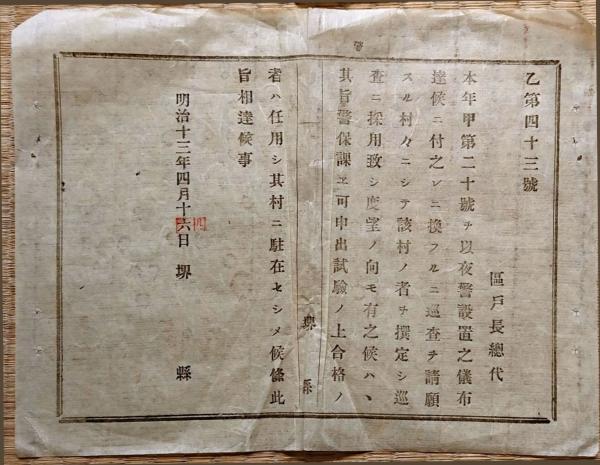 乙第四十三號
區戸長總代
本年甲第二十號ヲ以夜警設置之儀布
達候ニ付之レニ換フルニ巡査ヲ請願
スル村々ニシテ該村ノ者ヲ撰定シ巡
査ニ採用致シ度望ノ向モ有之候ハヽ
其旨警保課エ可申出試驗ノ上合格ノ
者ハ任用シ其村ニ駐在セシメ候條此
旨相達候事
明治十三年四月十六日 堺 縣
四
堺 縣